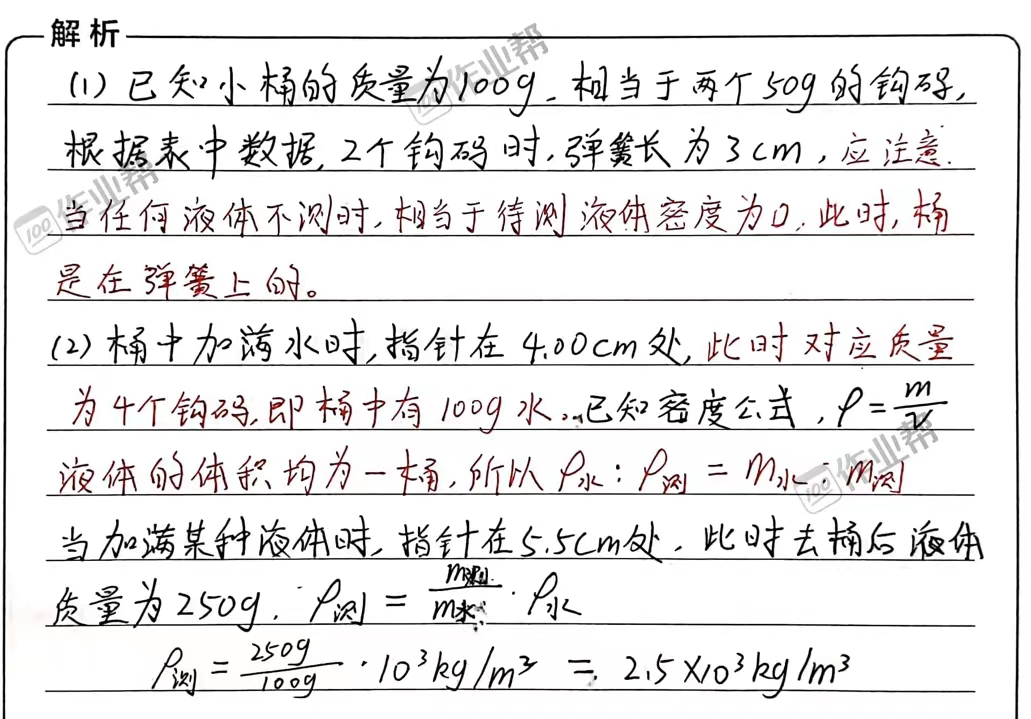 解析
(1)已知小桶的质量为100g、相当于两个50g的钩码,
根据表中数据,2个钩码时,弹簧长为3cm,应注意.
当任何液体不测时,相当于待测液体密度为0.此时,桶
是在弹簧上的。
(2)桶中加满水时,指针在4.00cm处,此时对应质量
为4个钩码,即桶中有100g水.已知密度公式,ρ=m/V
液体的体积均为一桶,所以ρ水:ρ测=m水:m测
当加满某种液体时,指针在5.5cm处.此时去桶后液体
质量为250g.ρ测=m测/m水·ρ水
ρ测=250g/100g·10³kg/m³=2.5×10³kg/m³
作业帮
作业帮
作业帮